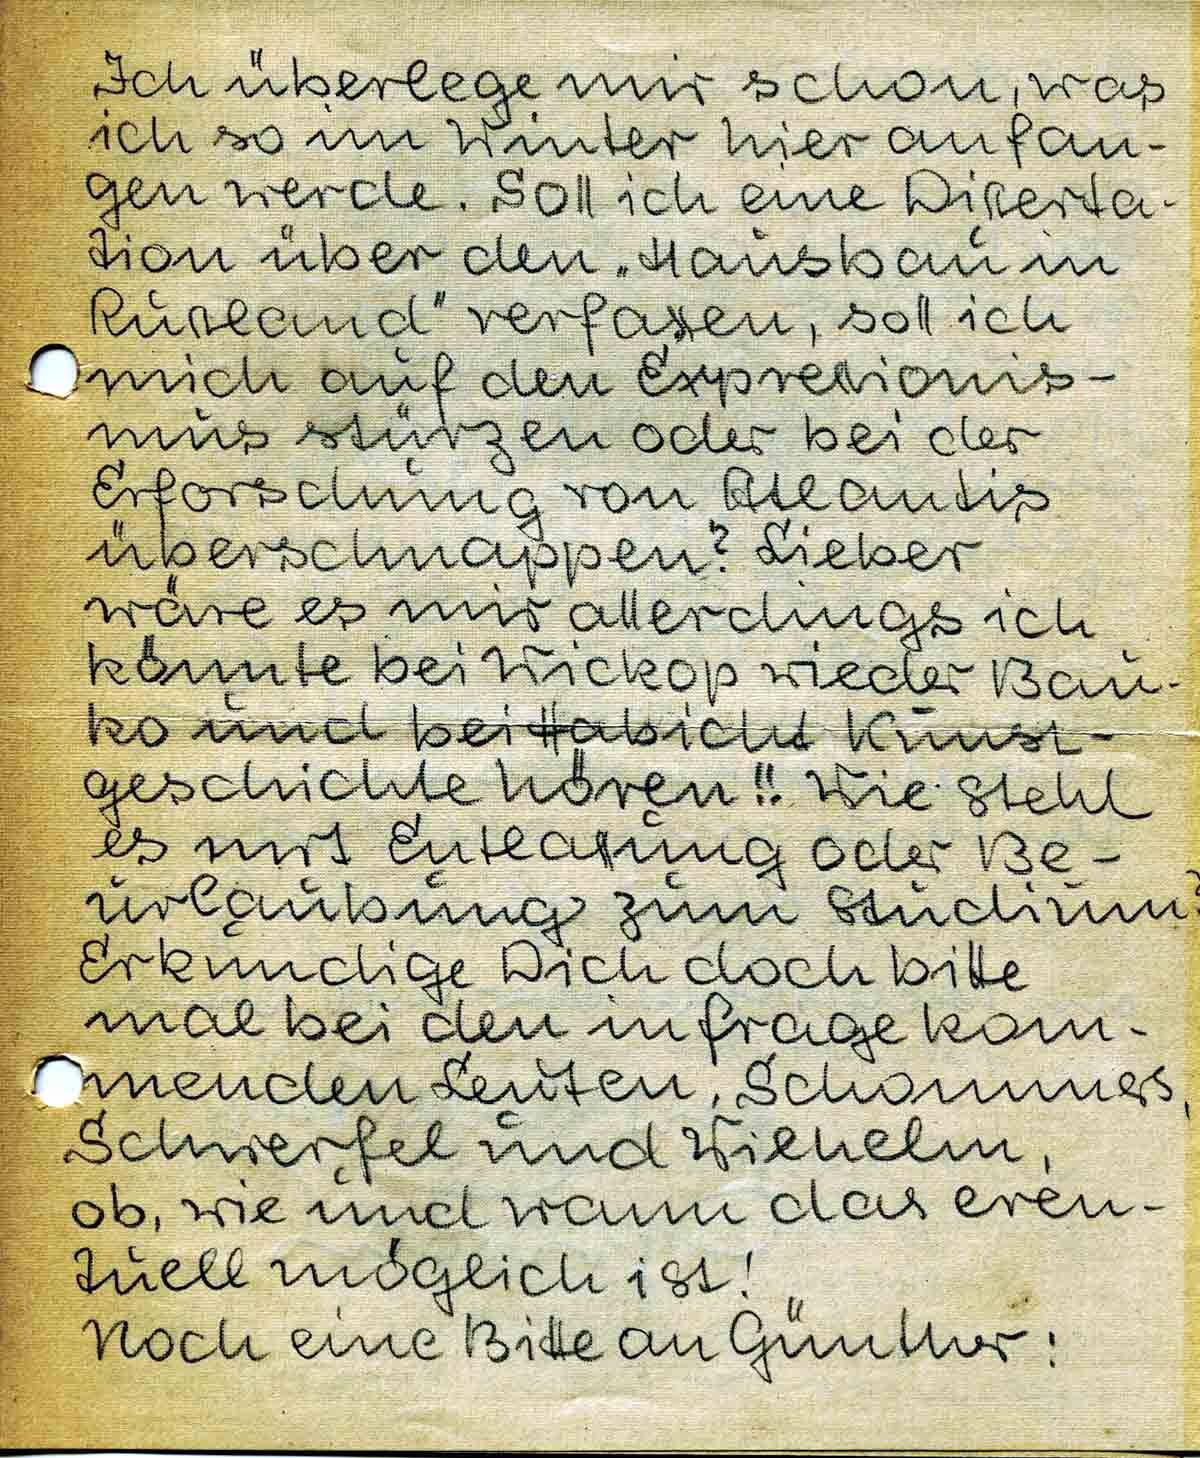 Ich überlege mir schon, was
ich so im Winter hier anfan-
gen werde. Soll ich eine Dißerta-
tion über den „Hausbau in
Rußland" verfassen, soll ich
mich auf den Expressionis-
mus stürzen oder bei der
Erforschung von Atlantis
überschnappen? Lieber
wäre es mir allerdings ich
könnte bei Wickop wieder Bau-
ko und bei Habicht Kunst-
geschichte hören!! Wie steht
es mit Entlassung oder Be-
urlaubung zum Studium?
Erkundige Dich doch bitte
mal bei den infragekom-
menden Leuten, Schommers,
Schwerfel und Wilhelm,
ob, wie und wann das even-
tuell möglich ist!
Noch eine Bitte an Günther: